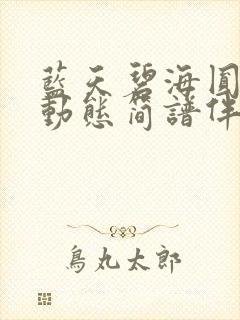 藍天碧海圓
動態簡譜伴
鳥丸太郎